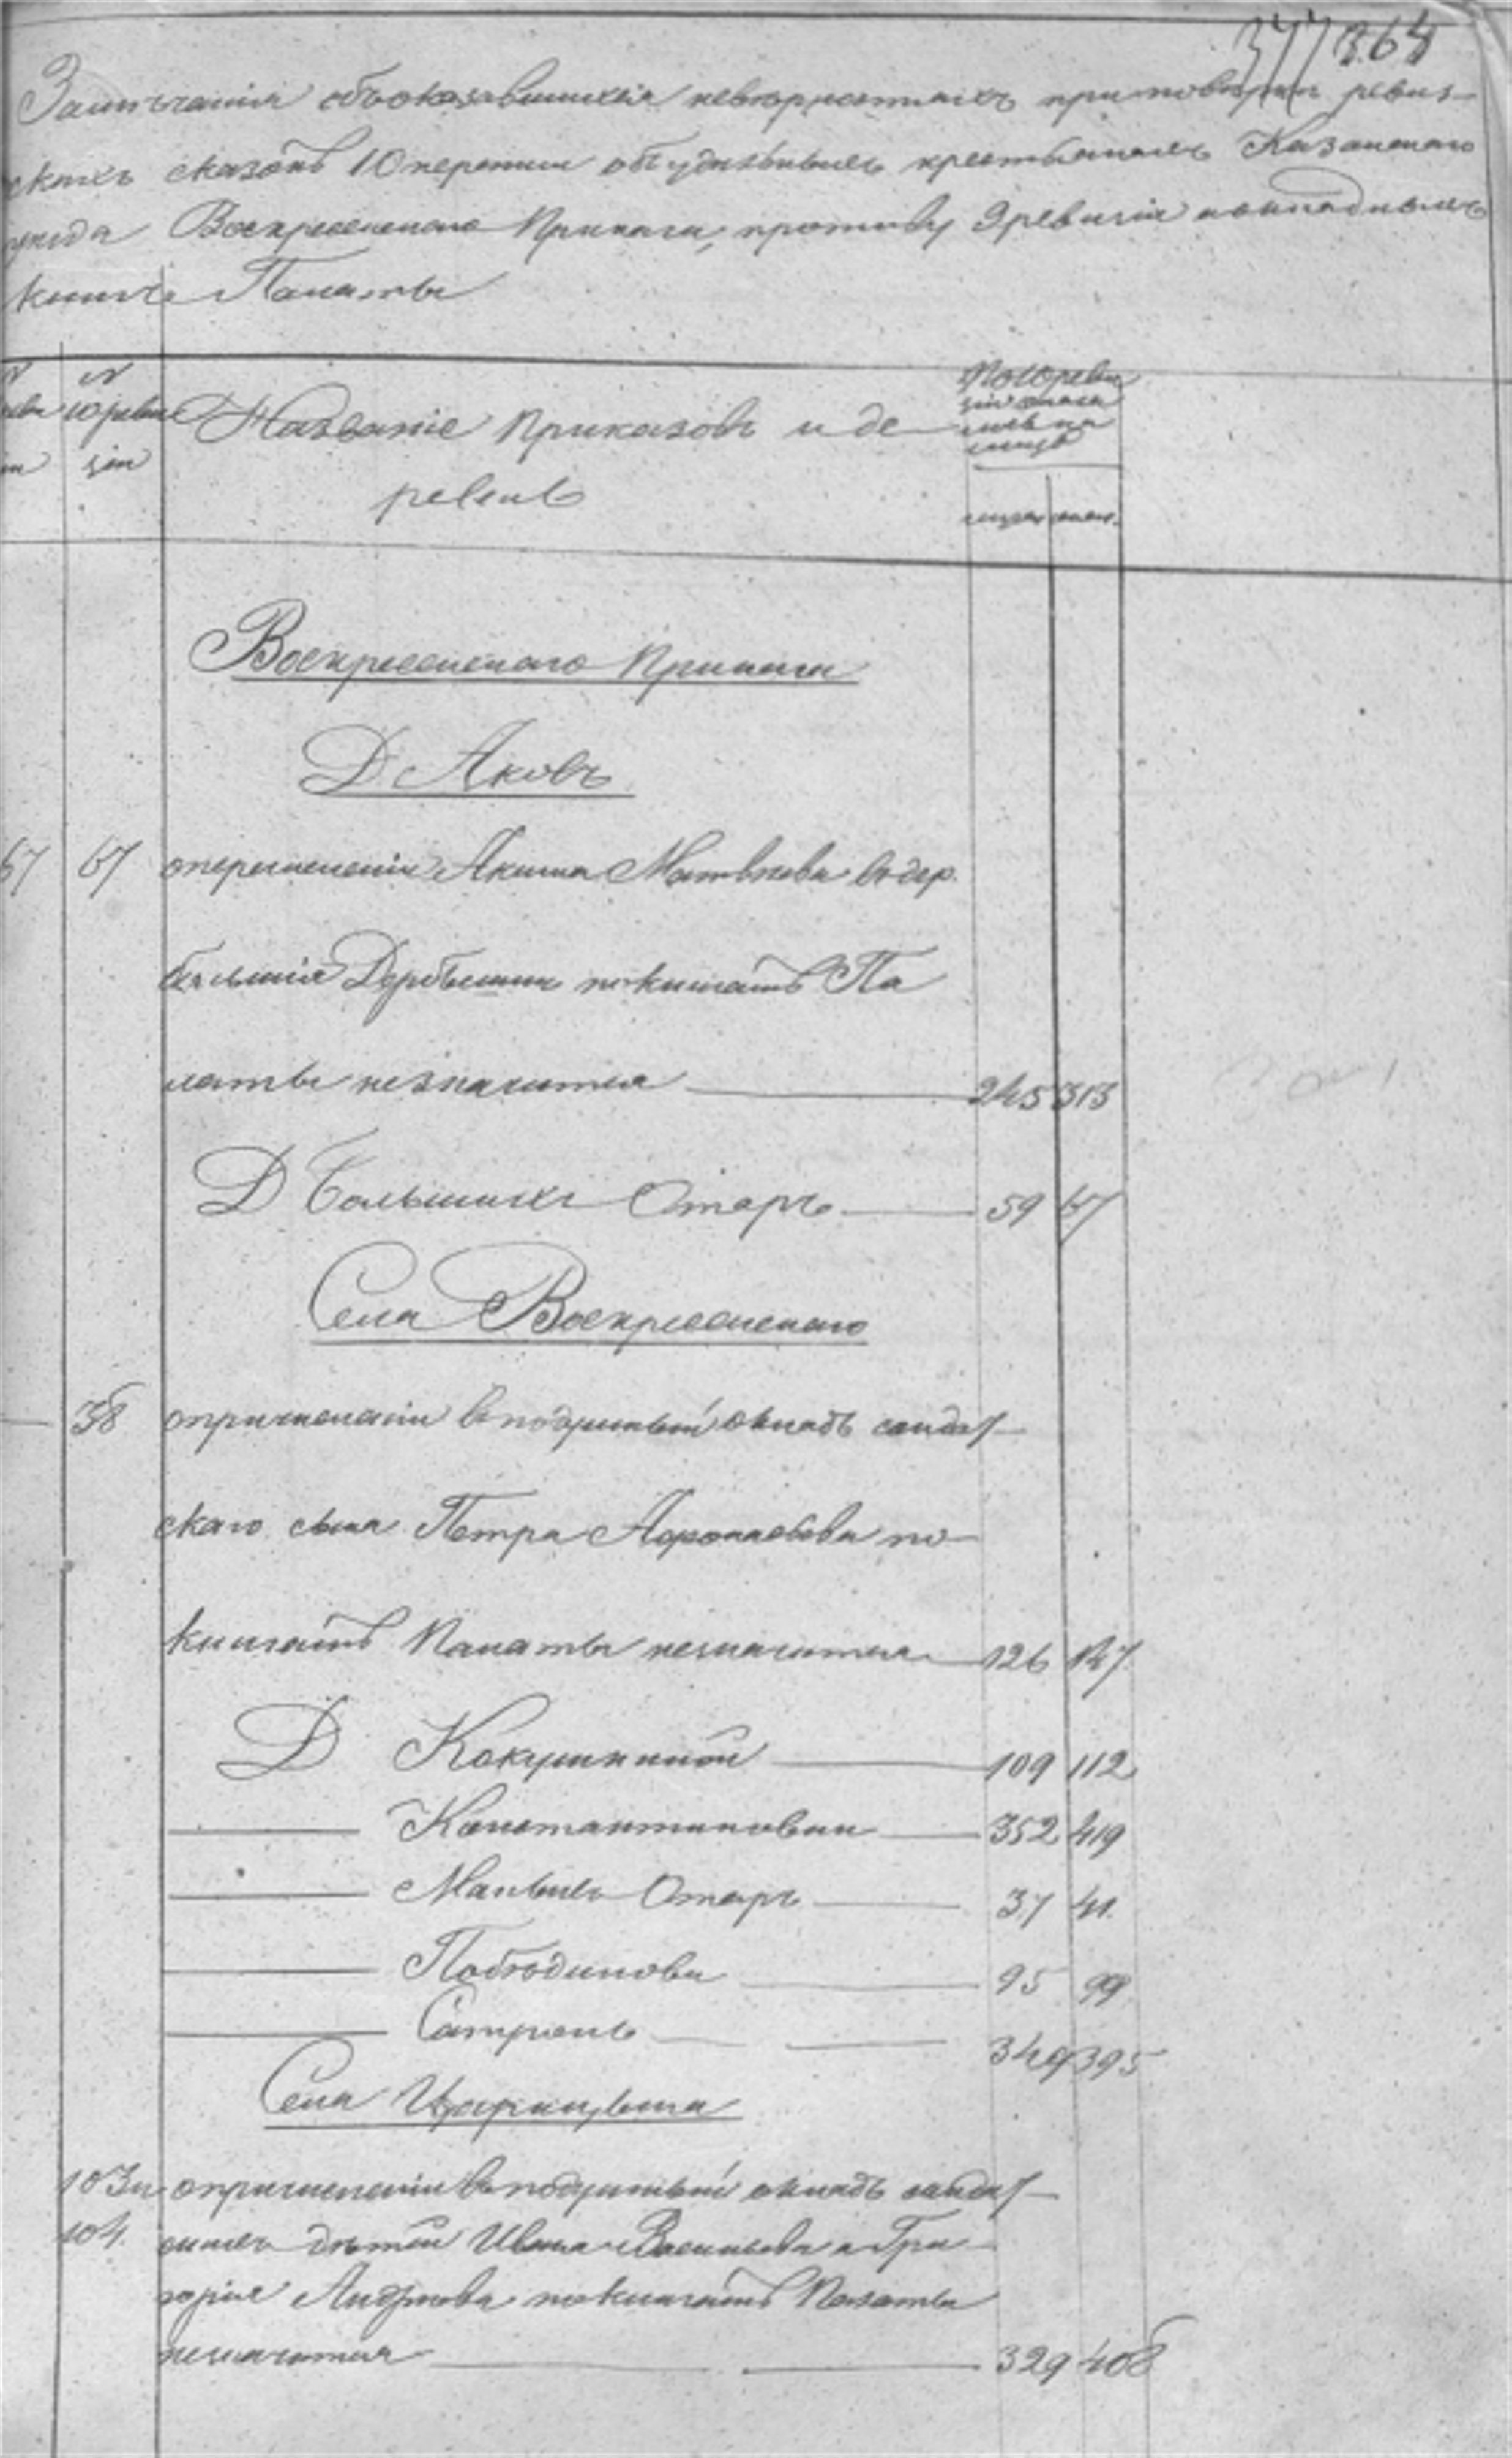 377 364
Замѣчанія объ оказавшихся невѣрностяхъ при повѣркѣ ревиз-
скихъ сказокъ 10 переписи объ удѣльныхъ крестьянахъ Казанскаго
уѣзда Воскресенскаго Приказа, противу 9 ревизіи и окладныхъ
книгъ Палаты
№ № 10 реви
зіи
Названіе Приказовъ и де
ревень
По 10 реви
зіи
налицо
муж. жен.
Воскресенскаго Приказа
Д Аковъ
67 67 о перечисленіи Акима Матвѣева въ дер.
большія Дербышки по книгамъ Па
латы не значится 245 313
Д Большихъ Отаръ 59 67
Села Воскресенскаго
— 38 о причисленіи въ подушный окладъ солдат-
скаго сына Петра Афонасьева по
книгамъ Палаты не значится 126 147
Д Кокушкиной 109 112
— Константиновки 352 419
— Малыхъ Отаръ 37 41
— Побѣдиловой 95 99
— 349 395
Села Царицына
103 и о причисленіи въ подушный окладъ солдат-
104. скихъ дѣтей Ивана Васильева и Гри
горія Андреева по книгамъ Палаты
не значится 329 408